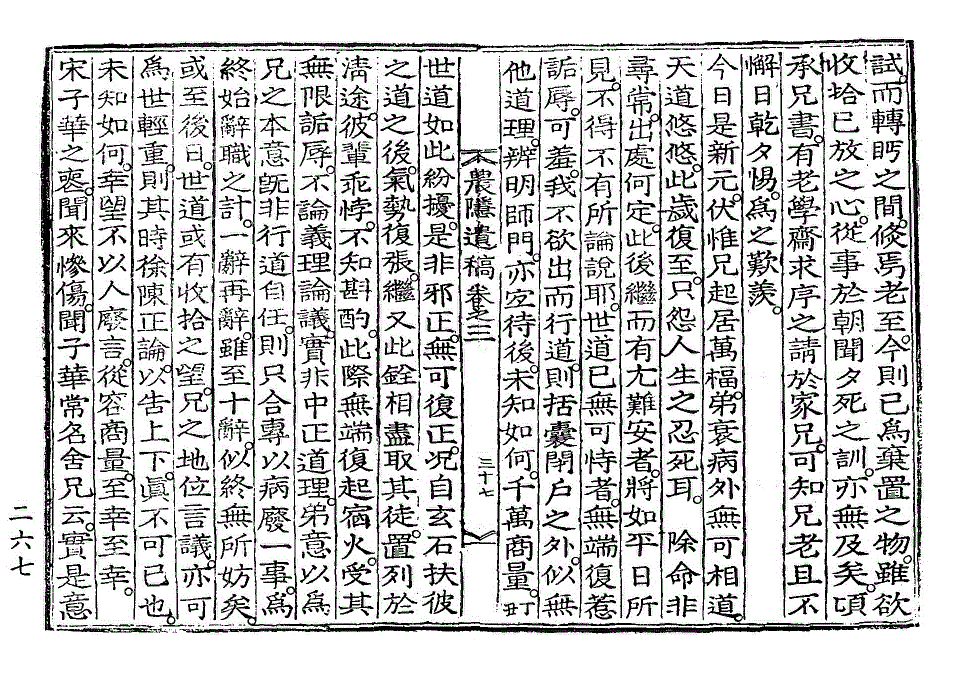 試。而轉眄之間。倐焉老至。今則已爲棄置之物。雖欲
收拾已放之心。從事於朝聞夕死之訓。亦無及矣。項
承兄書。有老學齋求序之請於家兄。可知兄老且不
懈日乾夕惕。爲之歎羨。
今日是新元。伏惟兄起居萬福。弟衰病外無可相道。
天道悠悠。此歲復至。只怨人生之忍死耳。 除命非
尋常。出處何定。此後繼而有尤難安者。將如平日所
見。不得不有所論說耶。世道已無可恃者。無端復惹
詬辱。可羞。我不欲出而行道。則括囊閉戶之外。似無
他道理。辨明師門。亦宜待後。未知如何。千萬商量。玎
農隱遺稿 卷之三
三十七
世道如此紛擾。是非邪正。無可復正。况自玄石扶彼
之道之後。氣勢復張。繼又此銓相盡取其徒。置列於
淸途。彼輩乖悖。不知斟酌。此際無端復起宿火。受其
無限詬辱。不論義理論議。實非中正道理。弟意以爲
兄之本意旣非行道自任。則只合專以病廢一事。爲
終始辭職之計。一辭再辭。雖至十辭。似終無所妨矣。
或至後日。世道或有收拾之望。兄之地位言議。亦可
爲世輕重。則其時徐陳正論。以告上下。眞不可已也。
未知如何。幸望不以人廢言。從容商量。至幸至幸。
宋子華之喪。聞來慘傷。聞子華常名舍兄云。實是意
二六七